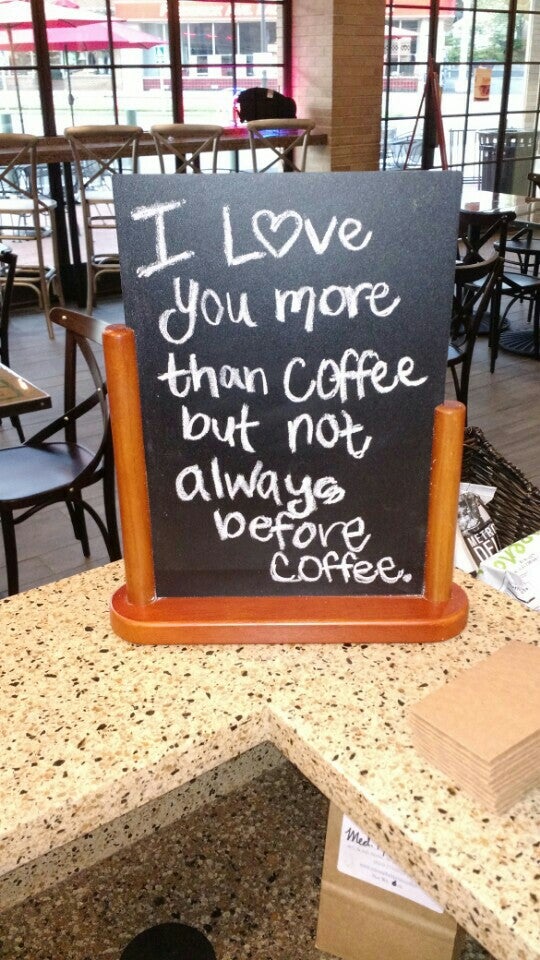 I Love
you more
than coffee
but not
always
before
coffee.
Med.